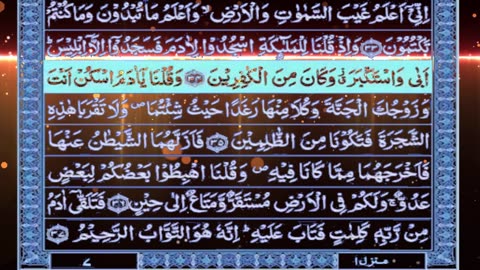 اِنِّیْۤ اَعْلَمُ غَیْبَ السَّمٰوٰتِ وَالْاَرْضِ ۙ وَاَعْلَمُ مَا تُبْدُوْنَ وَمَا كُنْتُمْ
تَكْتُمُوْنَ ﴿۳۳﴾ وَاِذْ قُلْنَا لِلْمَلٰٓئِكَةِ اسْجُدُوْا لِاٰدَمَ فَسَجَدُوْۤا اِلَّاۤ اِبْلِیْسَ ؕ
اَبٰی وَاسْتَكْبَرَ ۫ۗ وَكَانَ مِنَ الْكٰفِرِیْنَ ﴿۳۴﴾ وَقُلْنَا یٰۤاٰدَمُ اسْكُنْ اَنْتَ
وَزَوْجُكَ الْجَنَّةَ وَكُلَا مِنْهَا رَغَدًا حَیْثُ شِئْتُمَا ۪ وَلَا تَقْرَبَا هٰذِهِ
الشَّجَرَةَ فَتَكُوْنَا مِنَ الظّٰلِمِیْنَ ﴿۳۵﴾ فَاَزَلَّهُمَا الشَّیْطٰنُ عَنْهَا
فَاَخْرَجَهُمَا مِمَّا كَانَا فِیْهِ ۪ وَقُلْنَا اهْبِطُوْا بَعْضُكُمْ لِبَعْضٍ
عَدُوٌّ ۚ وَلَكُمْ فِی الْاَرْضِ مُسْتَقَرٌّ وَّمَتَاعٌ اِلٰی حِیْنٍ ﴿۳۶﴾ فَتَلَقّٰۤی اٰدَمُ
مِنْ رَّبِّهٖ كَلِمٰتٍ فَتَابَ عَلَیْهِ ؕ اِنَّهٗ هُوَ التَّوَّابُ الرَّحِیْمُ ﴿۳۷﴾
منزل ۱